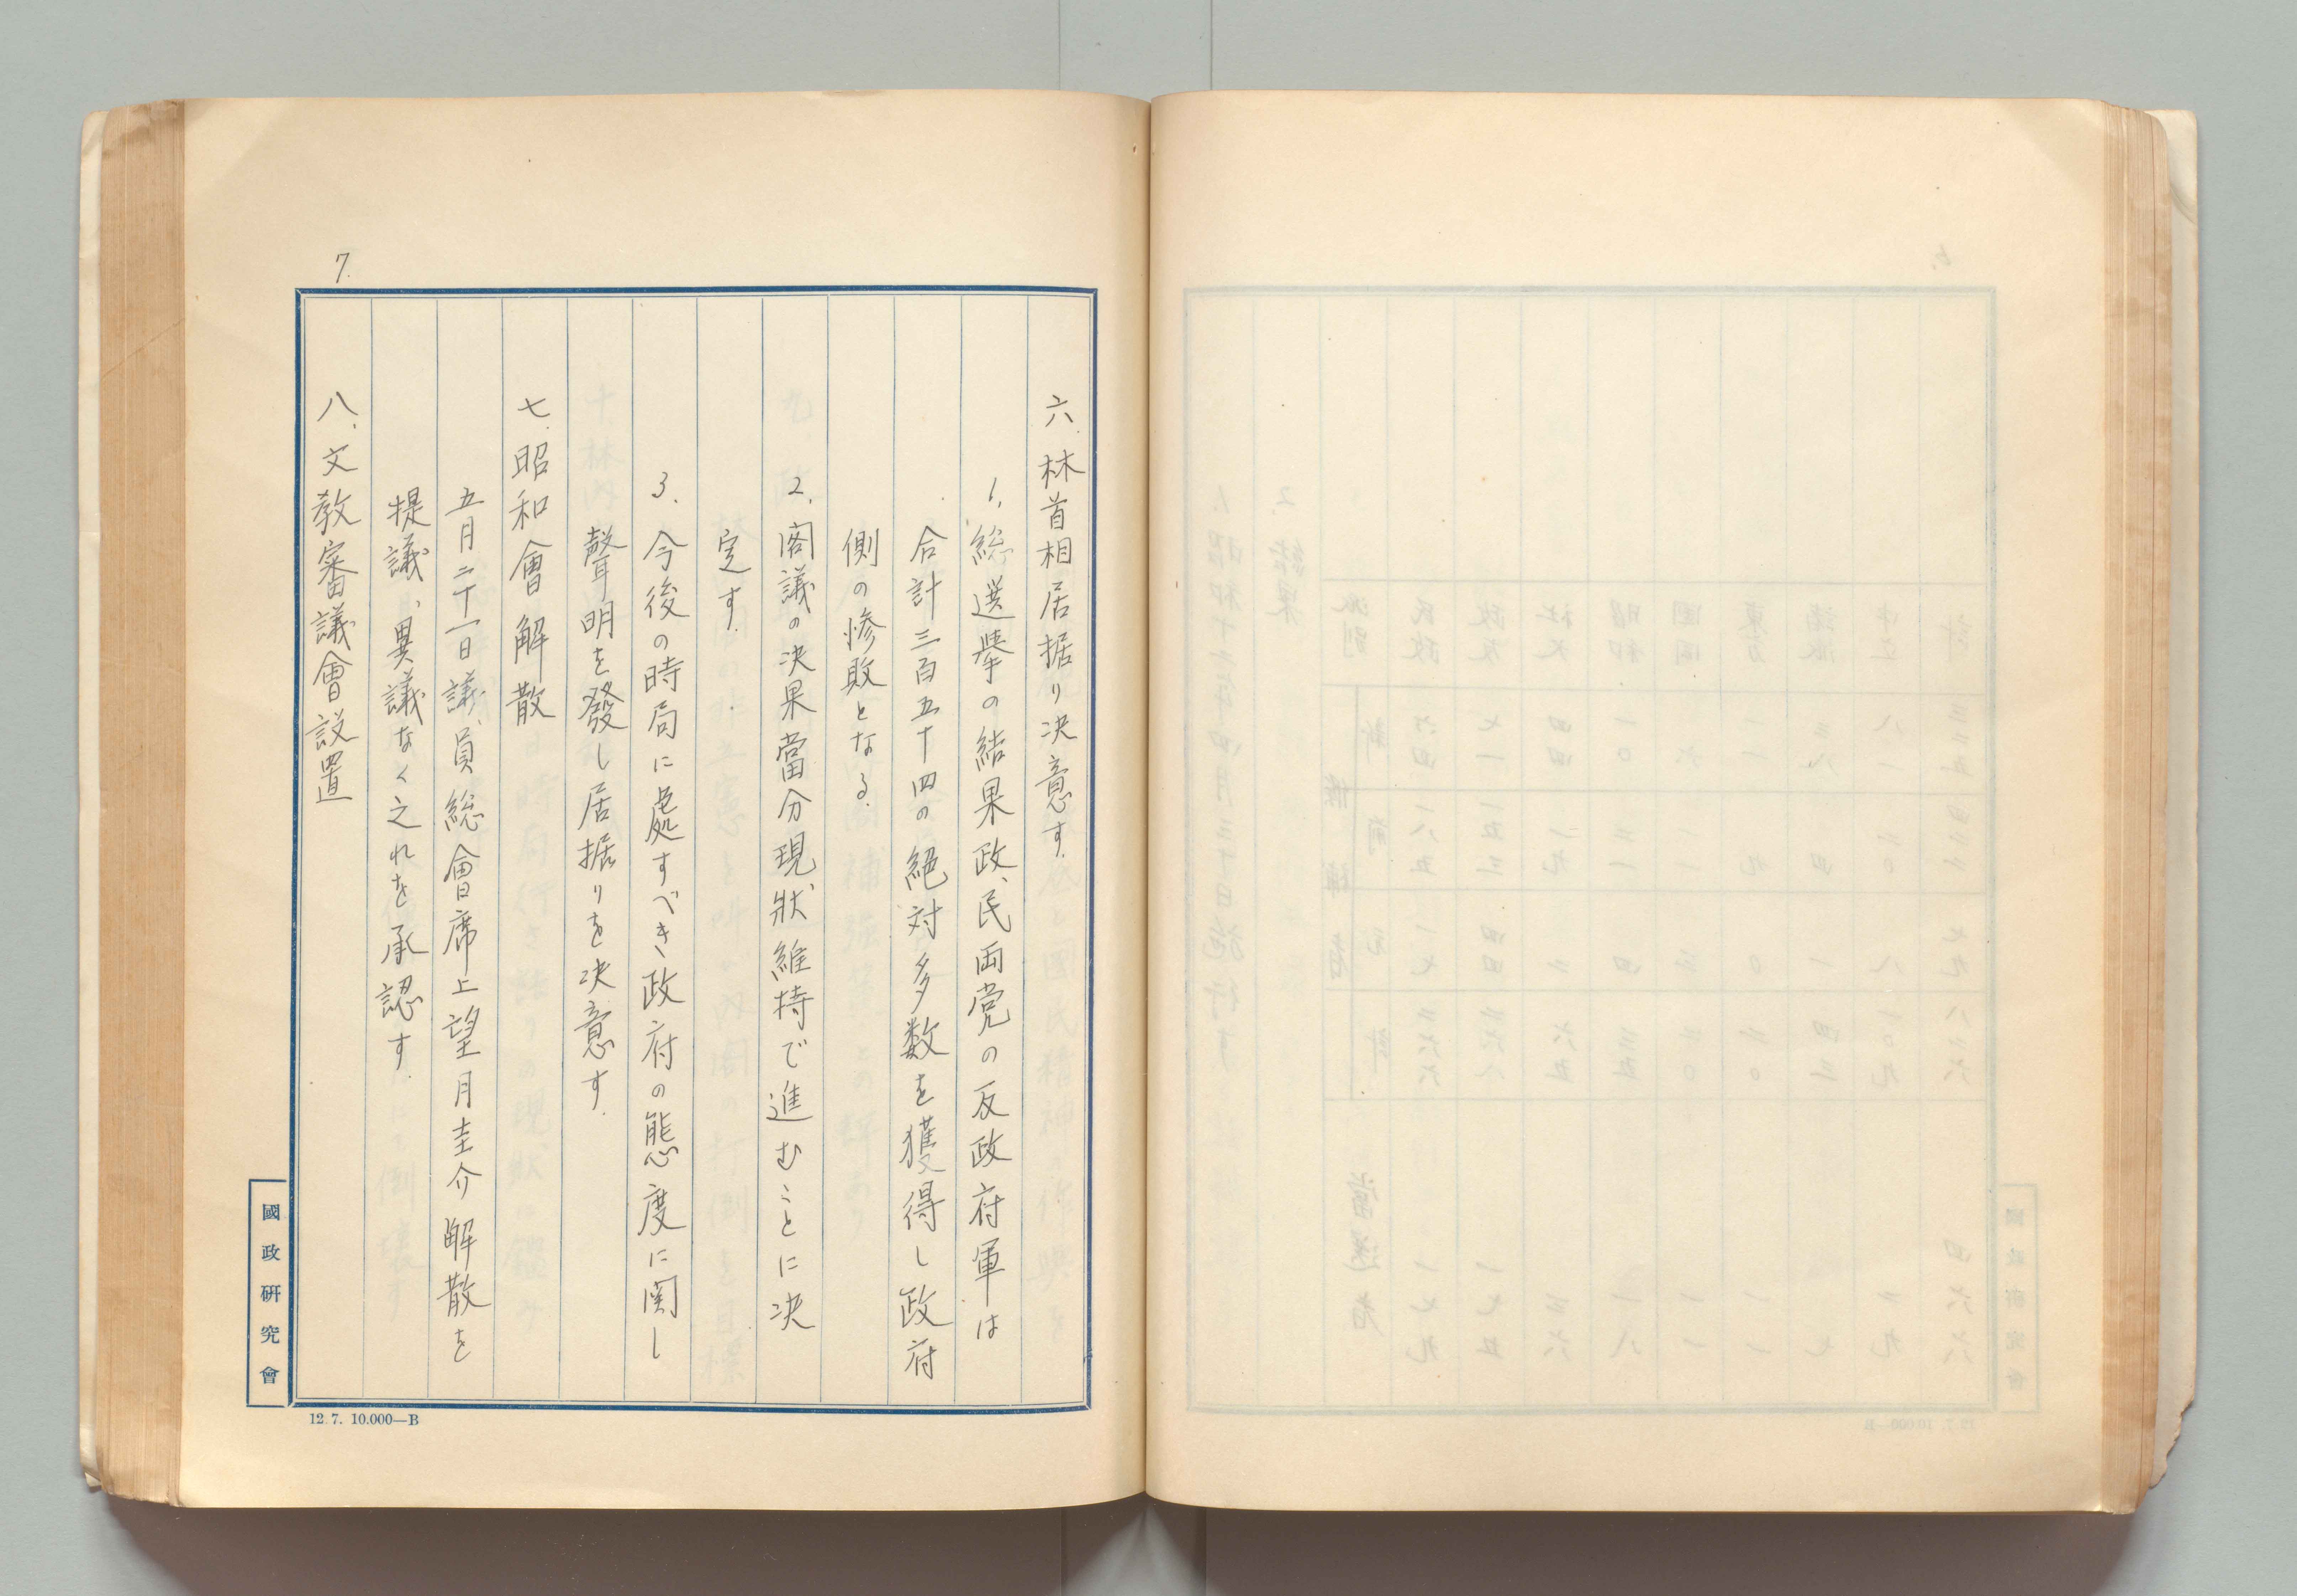 7.
六.林首相居据り決意す.
1.総選挙の結果政、民両党の反政府軍は
合計三百五十四の絶対多数を獲得し政府
側の惨敗となる.
2.閣議の決果當分現狀維持で進むことに決
定す.
3.今後の時局に處すべき政府の態度に関し
聲明を發し居据りを決意す.
七.昭和會解散
五月二十一日議員総會席上望月圭介解散を
提議、異議なく之れを承認す.
八.文教審議會設置
國政研究會
12.7. 10.000—B